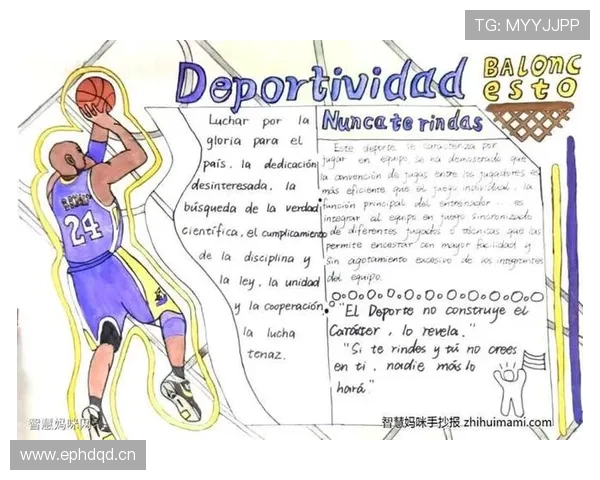 TG: MYYJJPP
Deportividad
BALONC
esto
Nunca te rindas
Luchar por la
gloria para el
país, la dedicación
desinteresada, la
búsqueda de la verdad
científica, el cumplicamiento
de la disciplina y
la ley, la unidad
y la cooperación,
la lucha
tenaz.
Este deporte se caracteriza por
jugar en equipo se ha demostrado que
la convención de jugas entre los jugadores es
más eficiente que el juego individual. la
función principal del entrenador.. es
integrar al equipo en juego sincronizado
de diferentes jugados o técnicas que las
permite encestar con mayor facilidad y
sin agotamiento excesivo de los integrantes
del equipo.
"EL Deporte no construye el
Carácter, lo revela."
"Si te rindes y tú no crees
en ti, nadie más lo
hará."
24
智慧妈咪网
智慧妈咪手抄报.zhihuimami.com
www.ephdqd.cn